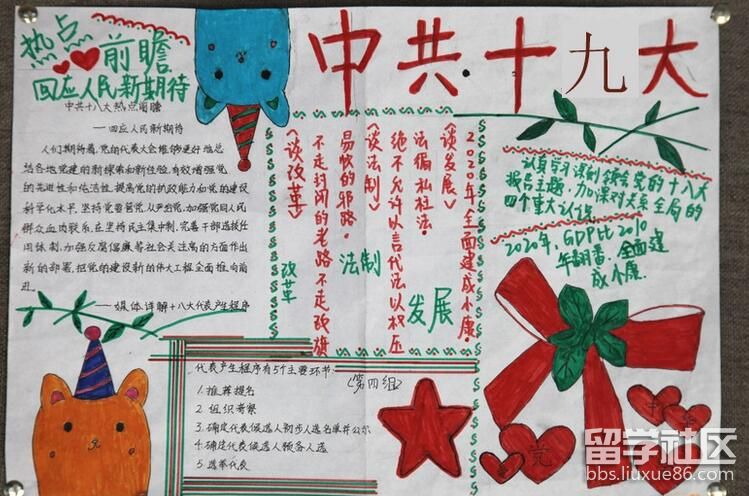 热点
前瞻
回应人民新期待
中共十八大热点前瞻
——回应人民新期待
人们期待着,党的代表大会能够更好地总
结各地党建的新探索和新经验,有效增强党
的先进性和纯洁性,提高党的执政能力和党的建设
科学化水平,坚持党要管党、从严治党,加强党同人民
群众血肉联系,在坚持民主集中制、完善干部选拔任
用体制、加强反腐倡廉等社会关注高的方面作出
新的部署,把党的建设新的伟大工程全面推向前
进。
——媒体详解十八大代表产生程序
中共十九大
《谈发展》
2020年全面建成小康。
《谈法制》
绝不允许以言代法以权压
法徇私枉法。
《谈改革》
不走封闭的老路不走改旗
易帜的邪路。
改革
法制
发展
认真学习深刻领会党的十八大
报告主题,加深对关系全局的
四个重大认识
2020年,GDP比2010
年翻番,全面建
成小康.
代表产生程序有5个主要环节:
1.推荐提名
2.组织考察
3.确定代表候选人初步人选名单并公示
4.确定代表候选人预备人选
5.选举代表
(第四组)
党
留学社区
bbs.liuxue86.com